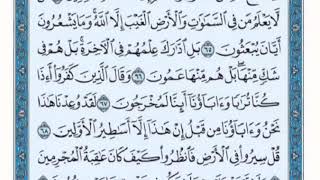 لَّا يَعْلَمُ مَن فِي ٱلسَّمَٰوَٰتِ وَٱلْأَرْضِ ٱلْغَيْبَ إِلَّا ٱللَّهُ وَمَا يَشْعُرُونَ
أَيَّانَ يُبْعَثُونَ ٦٥ بَلِ ٱدَّٰرَكَ عِلْمُهُمْ فِي ٱلْءَاخِرَةِ بَلْ هُمْ فِي
شَكٍّ مِّنْهَا بَلْ هُم مِّنْهَا عَمُونَ ٦٦ وَقَالَ ٱلَّذِينَ كَفَرُوٓا۟ أَءِذَا
كُنَّا تُرَٰبًا وَءَابَآؤُنَآ أَئِنَّا لَمُخْرَجُونَ ٦٧ لَقَدْ وُعِدْنَا هَٰذَا
نَحْنُ وَءَابَآؤُنَا مِن قَبْلُ إِنْ هَٰذَآ إِلَّآ أَسَٰطِيرُ ٱلْأَوَّلِينَ ٦٨
قُلْ سِيرُوا۟ فِي ٱلْأَرْضِ فَٱنظُرُوا۟ كَيْفَ كَانَ عَٰقِبَةُ ٱلْمُجْرِمِينَ